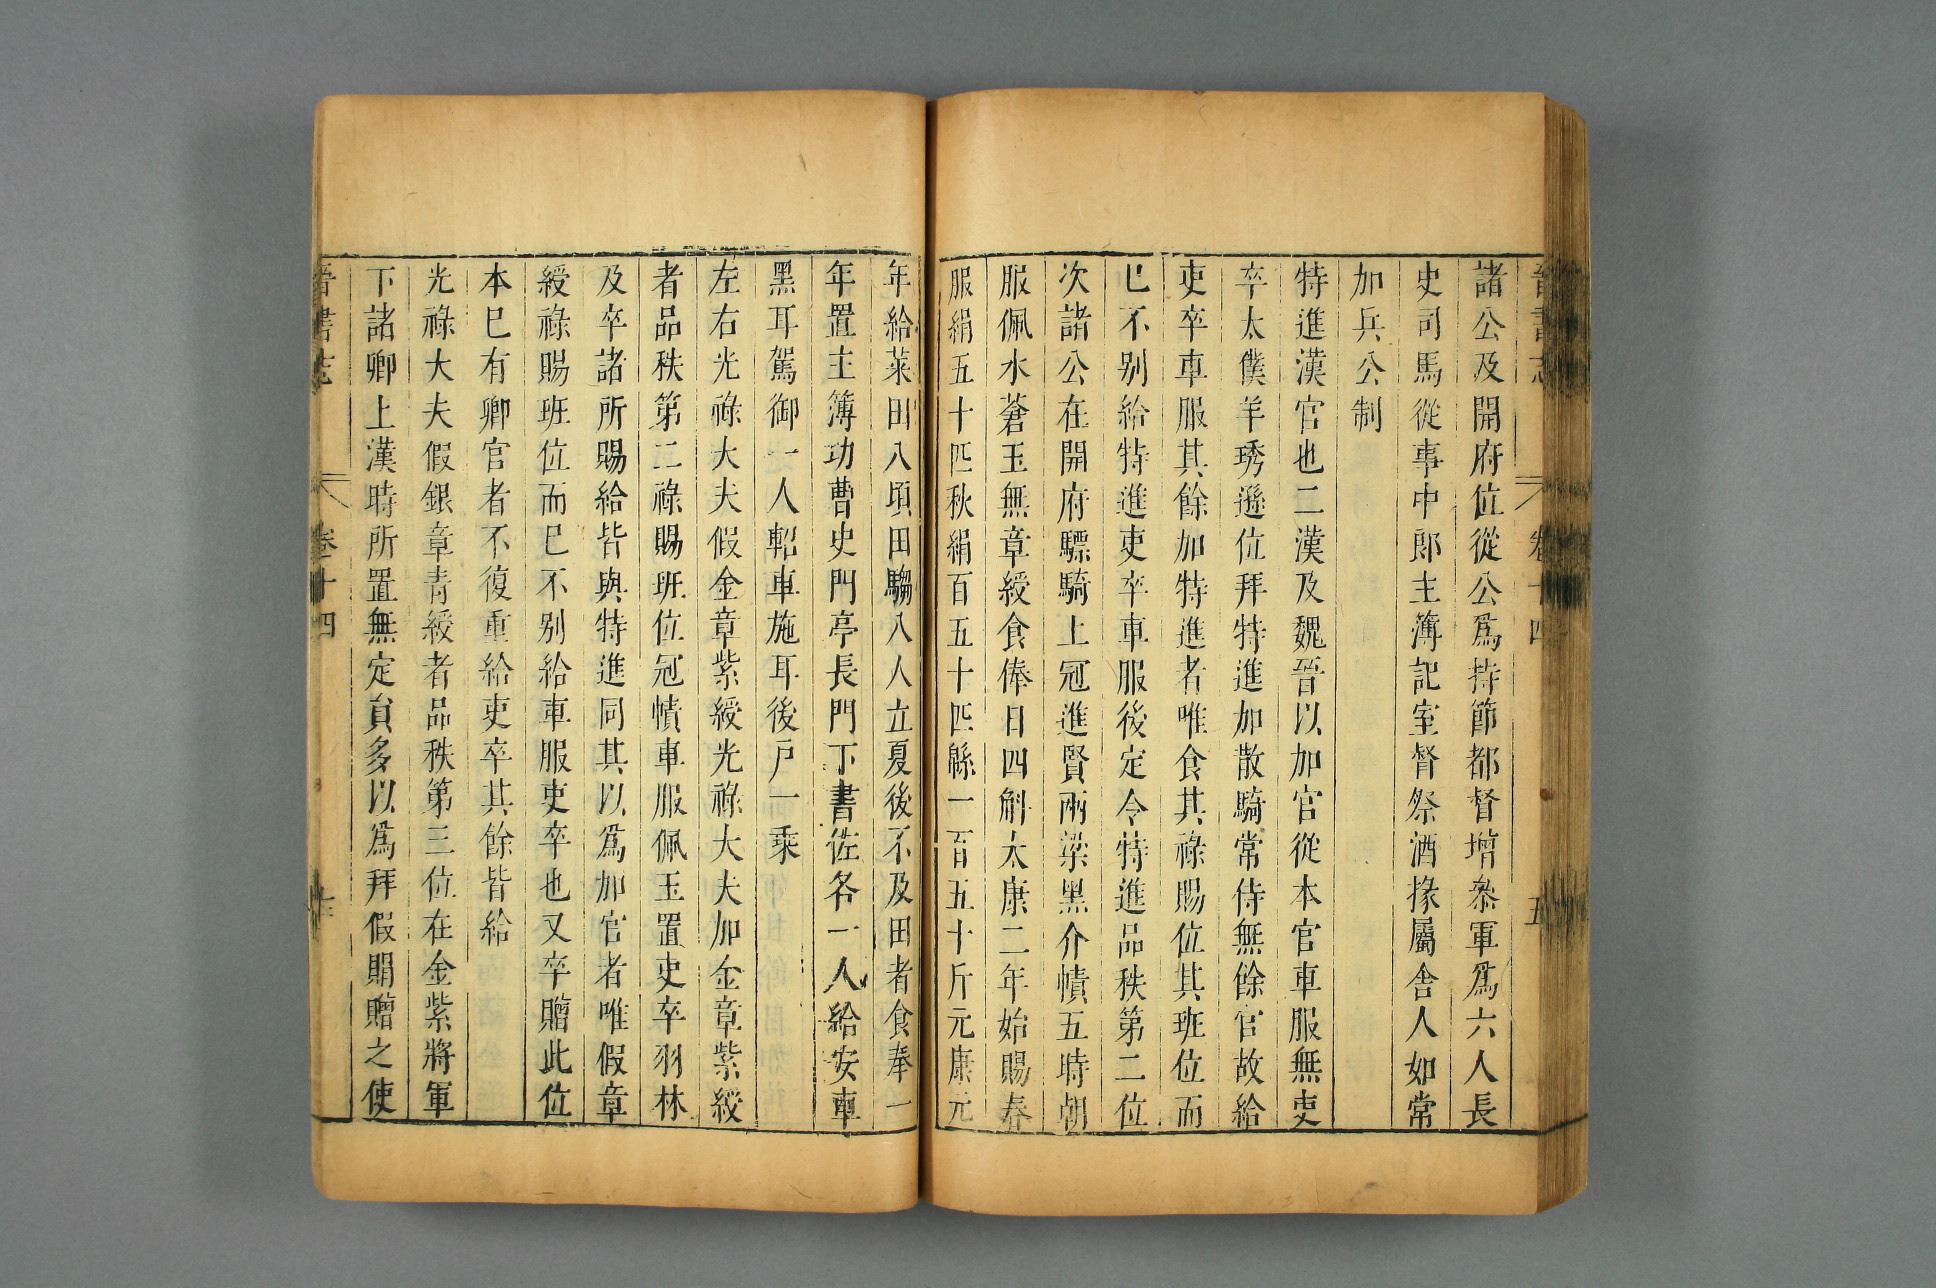 晉書志 卷十四 五
諸公及開府位從公爲持節都督增參軍爲六人長
史司馬從事中郎主簿記室督祭酒掾屬舍人如常
加兵公制
特進漢官也二漢及魏晉以加官從本官車服無吏
卒太僕羊琇遜位拜特進加散騎常侍無餘官故給
吏卒車服其餘加特進者唯食其祿賜位其班位而
已不別給特進吏卒車服後定令特進品秩第二位
次諸公在開府驃騎上冠進賢兩梁黑介幘五時朝
服佩水蒼玉無章綬食俸日四斛太康二年始賜春
服絹五十匹秋絹百五十匹緜一百五十斤元康元
年給菜田八頃田騶八人立夏後不及田者食奉一
年置主簿功曹史門亭長門下書佐各一人給安車
黑耳駕御一人軺車施耳後戶一乘
左右光祿大夫假金章紫綬光祿大夫加金章紫綬
者品秩第二祿賜班位冠幘車服佩玉置吏卒羽林
及卒諸所賜給皆與特進同其以爲加官者唯假章
綬祿賜班位而已不別給車服吏卒也又卒贈此位
本已有卿官者不復重給吏卒其餘皆給
光祿大夫假銀章青綬者品秩第三位在金紫將軍
下諸卿上漢時所置無定員多以爲拜假賵贈之使
晉書志 卷十四